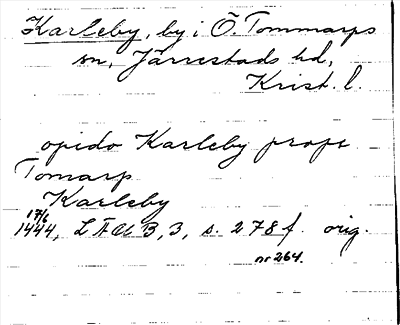 Karleby, by i Ö. Tommarps
sn, Järrestads hd,
Krist. l.
opido Karleby prope
Tomarp
Karleby
17/6
1444, LÄU B, 3, s. 278 f. orig.
nr 264.